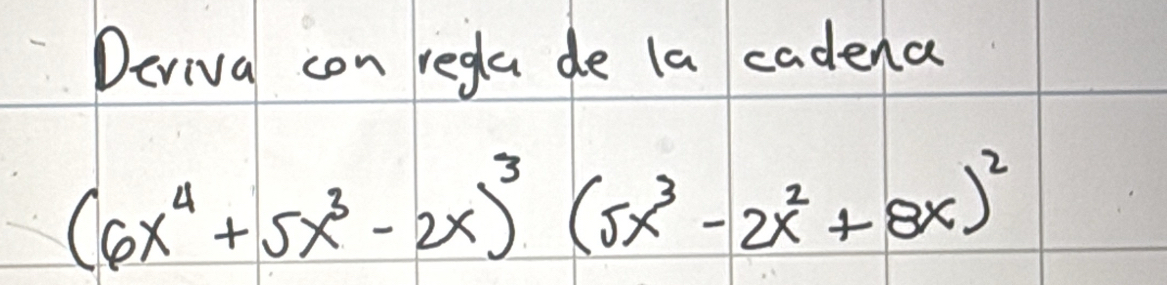 Deriva con regla de la cadena
(6x⁴ + 5x³ - 2x)³ (5x³ - 2x² + 8x)²